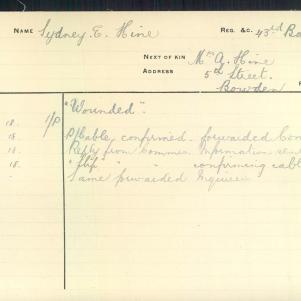 NAME Sydney E. Hine REG. &C. 43rd Ba
NEXT OF KIN Mrs A. Hine
ADDRESS 5th Street.
Bowden
"Wounded".
18. 1/P P/Cable, confirmed forwarded Com
18. Reply from Commun Information sen
18. " " confirming cabl
Same forwarded Enquirer